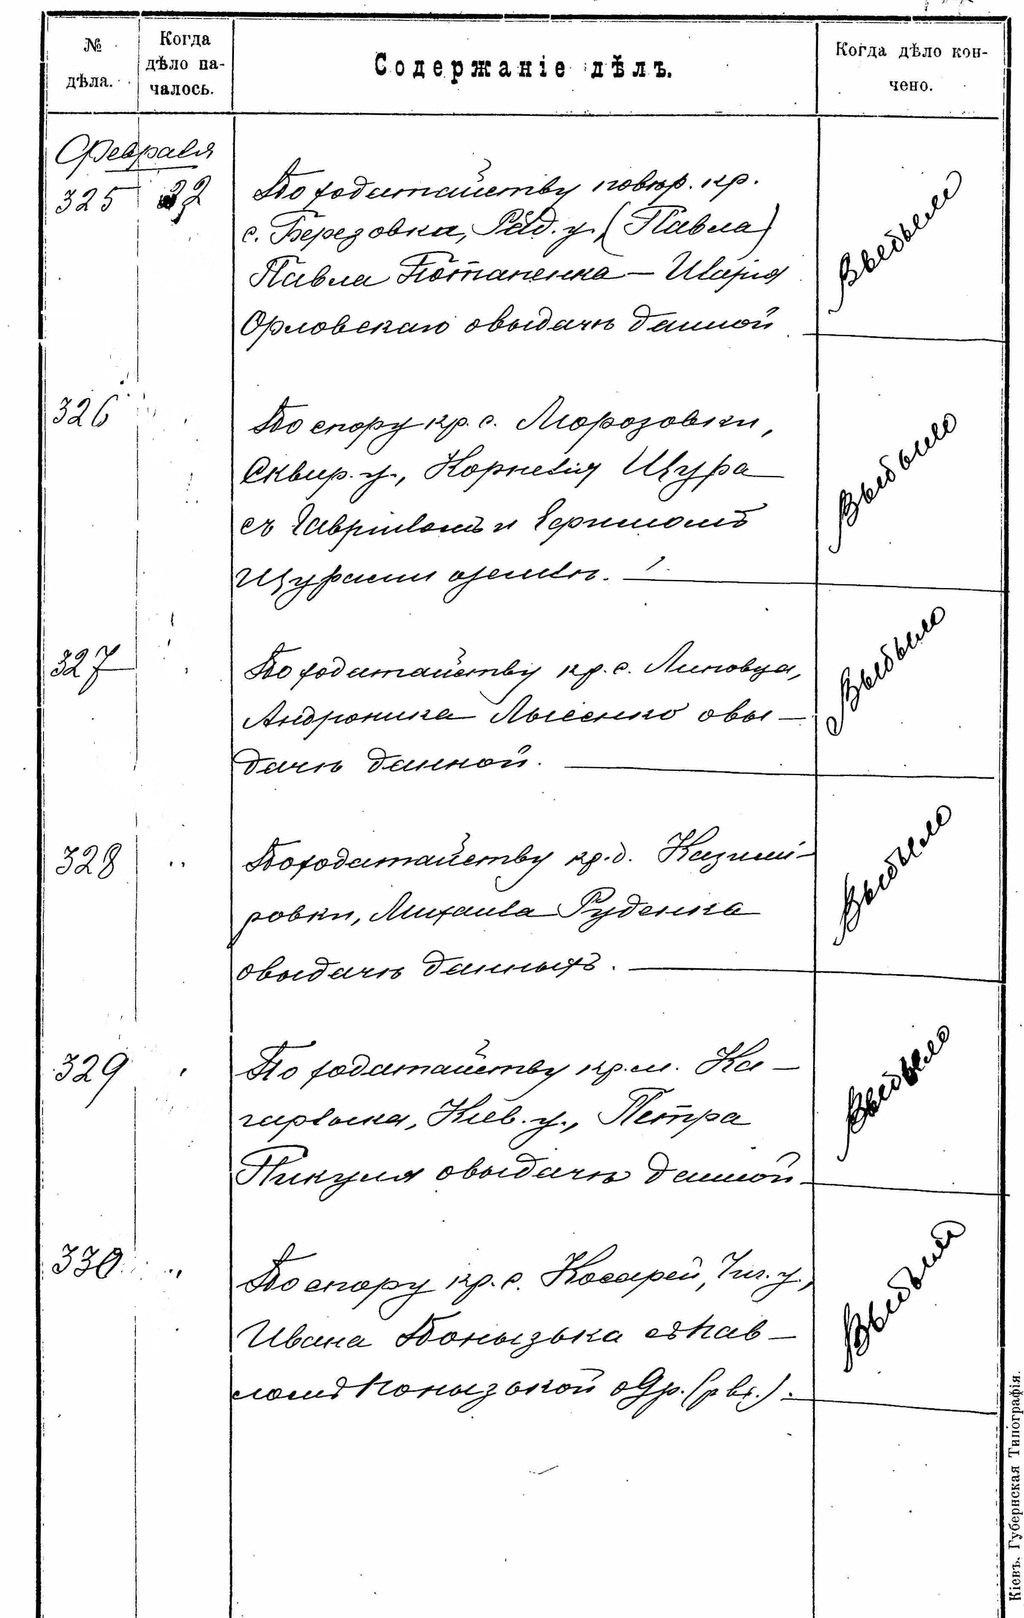 № дѣла.
Когда дѣло на-
чалось.
Содержаніе дѣлъ.
Когда дѣло кон-
чено.
Февраля
325 22 По ходатайству повѣр. кр.
с. Березовка, Рад. у. (Павла)
Павла Потапенка —
Орловскаго о выдачѣ данной
Выбыло
326 По спору кр. с. Морозовки,
Сквир. у., Корнелія Щура
съ Гавріиломъ и Ефимомъ
Щурами о землѣ.
Выбыло
327 По ходатайству кр. с. Липовца,
Андроника Лысенко о вы-
дачѣ данной.
Выбыло
328 " По ходатайству кр. д. Казими-
ровки, Михаила Руденка
о выдачѣ данныхъ.
Выбыло
329 По ходатайству кр. м. Ка-
гарлыка, Кіев. у., Петра
Пикуля о выдачѣ данной
Выбыло
330 " По спору кр. с. Косарей, Чиг. у.,
Ивана
Выбыло
Кіевъ. Губернская Типографія.